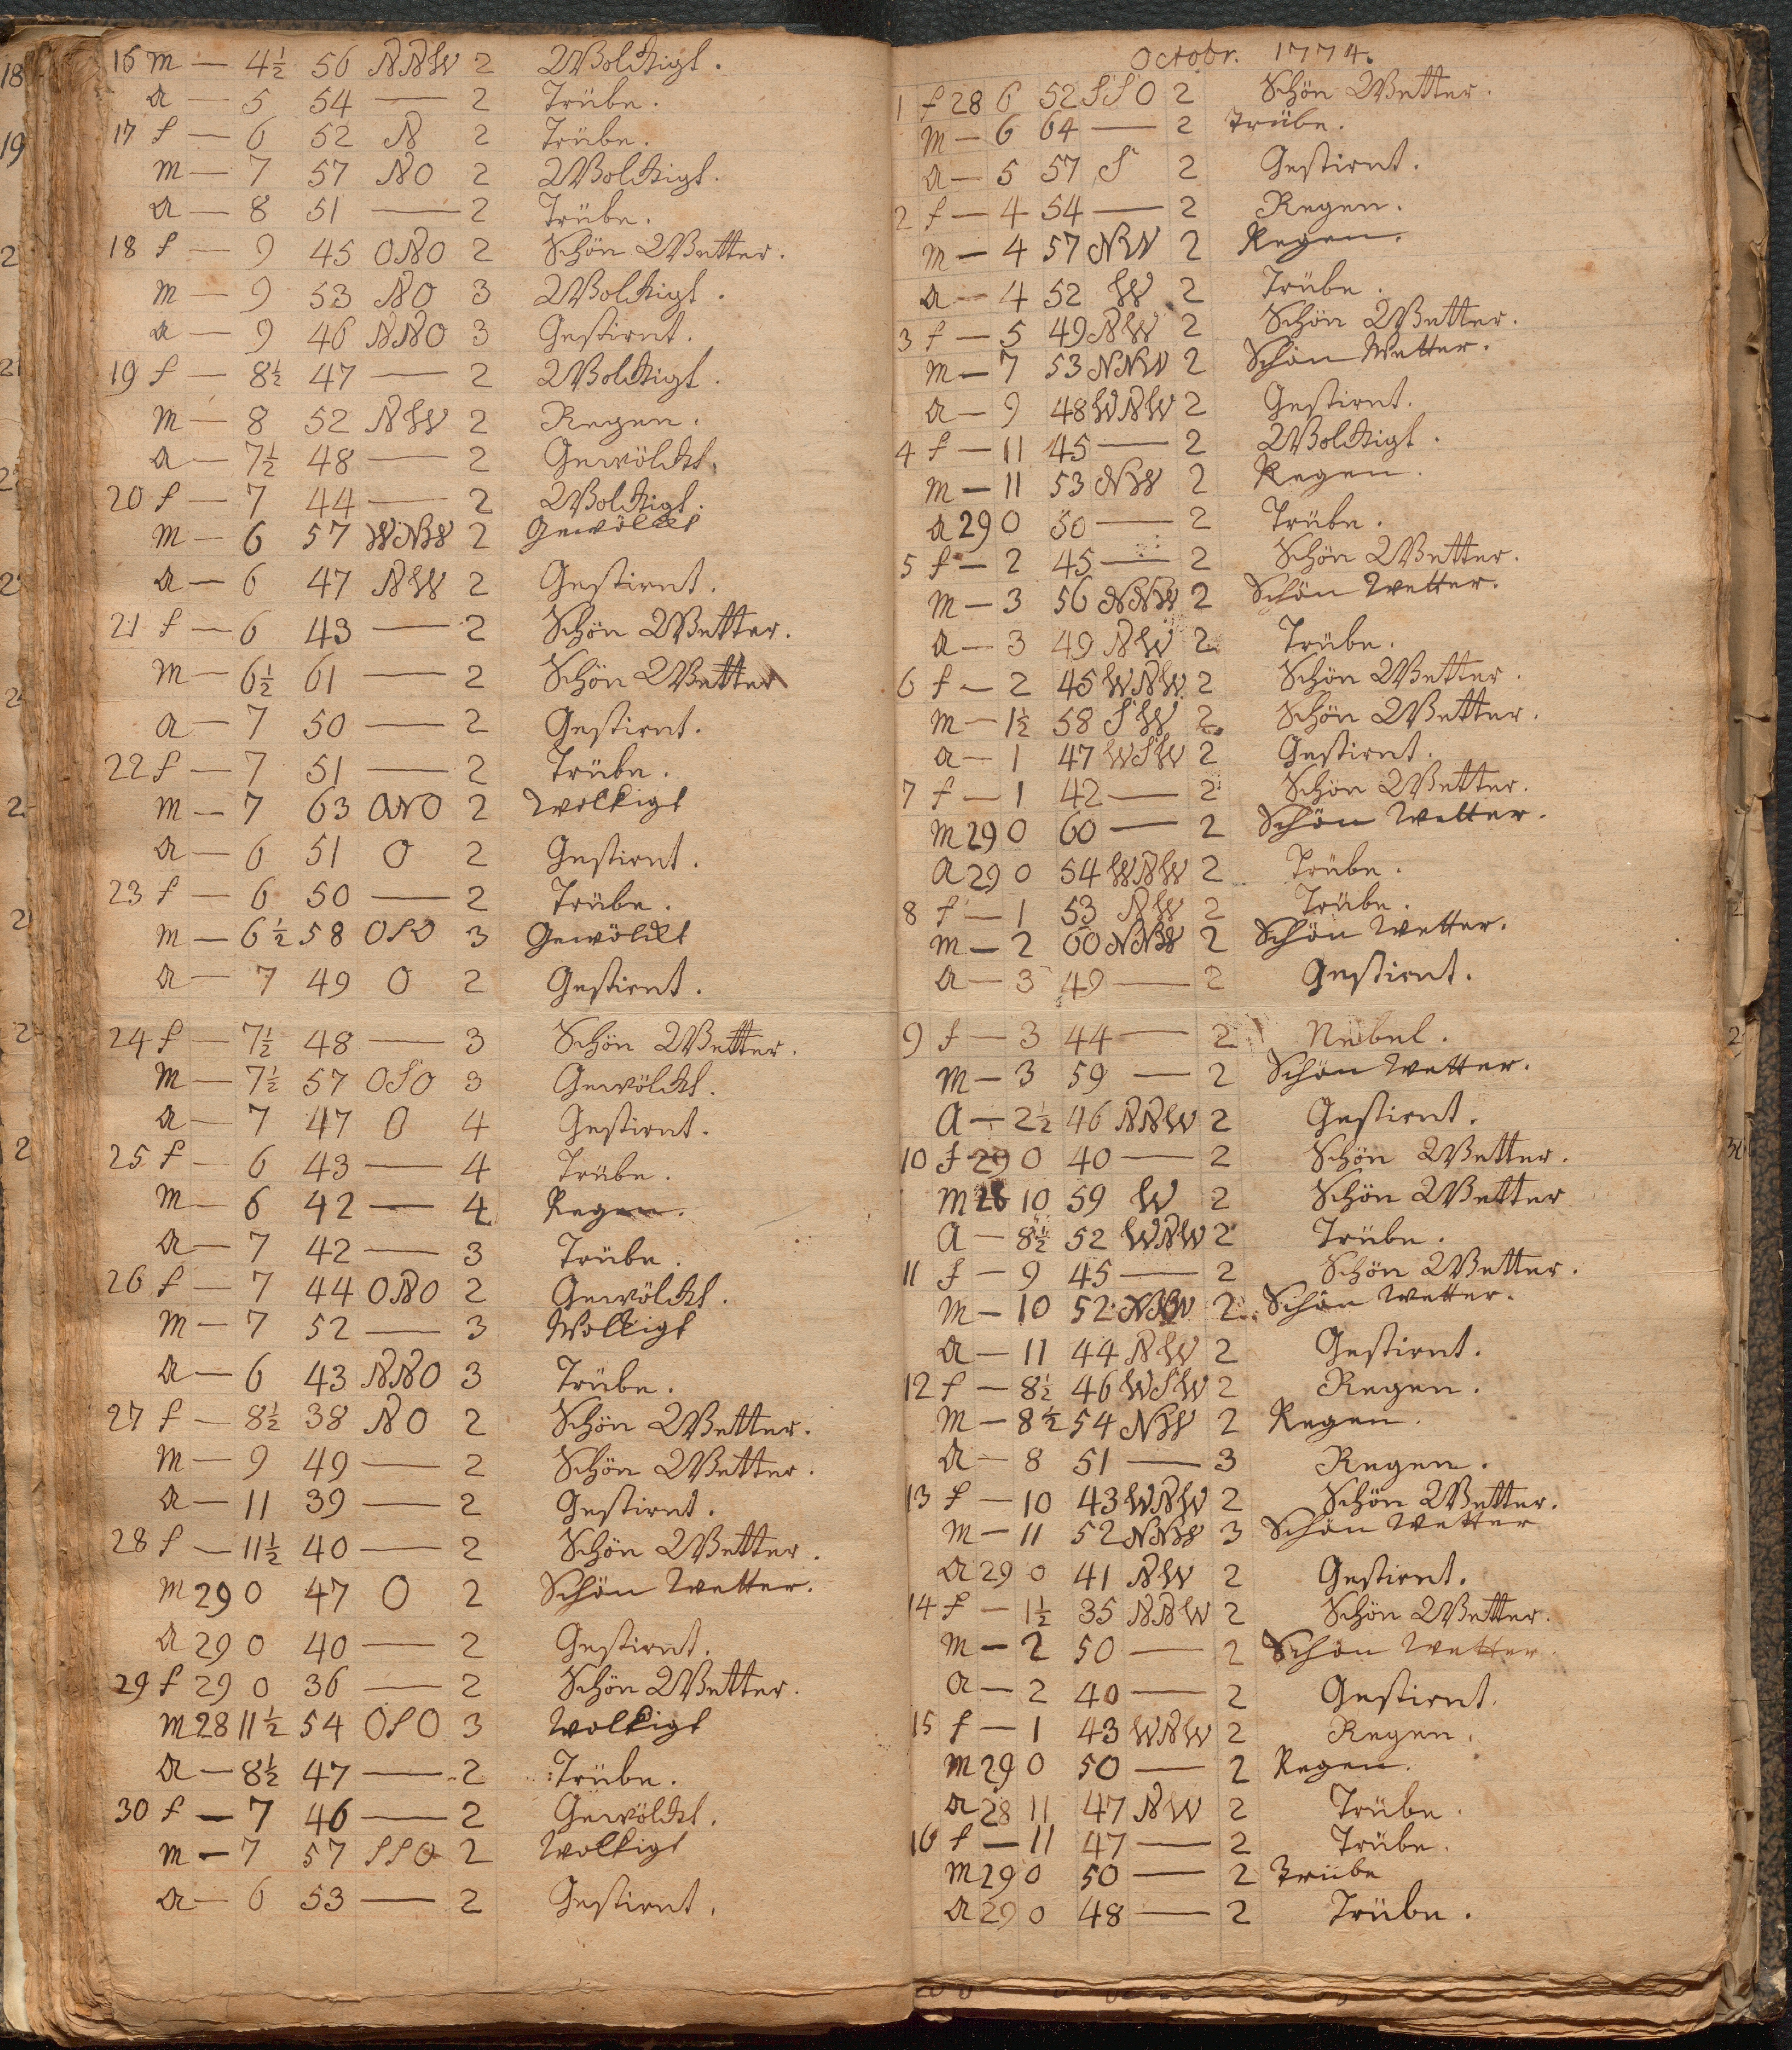 16 m — 4½ 56 NNW 2 Wolckigt.
a — 5 54 — 2 Trübe.
17 f — 6 52 N 2 Trübe.
m — 7 57 NO 2 Wolckigt.
a — 8 51 — 2 Trübe.
18 f — 9 45 ONO 2 Schön Wetter.
m — 9 53 NO 3 Wolckigt.
a — 9 46 NNO 3 Gestirnt.
19 f — 8½ 47 — 2 Wolckigt.
m — 8 52 NW 2 Regen.
a — 7½ 48 — 2 Gewölckt.
20 f — 7 44 — 2 Wolckigt.
m — 6 57 WNW 2 Gewölckt
a — 6 47 NW 2 Gestirnt.
21 f — 6 43 — 2 Schön Wetter.
m — 6½ 61 — 2 Schön Wetter
a — 7 50 — 2 Gestirnt.
22 f — 7 51 — 2 Trübe.
m — 7 63 ONO 2 Wolkigt
a — 6 51 O 2 Gestirnt.
23 f — 6 50 — 2 Trübe.
m — 6½ 58 OSO 3 Gewölckt
a — 7 49 O 2 Gestirnt.
24 f — 7½ 48 — 3 Schön Wetter.
m — 7½ 57 OSO 3 Gewölckt.
a — 7 47 O 4 Gestirnt.
25 f — 6 43 — 4 Trübe.
m — 6 42 — 4 Regen.
a — 7 42 — 3 Trübe.
26 f — 7 44 ONO 2 Gewölckt.
m — 7 52 — 3 Wolkigt
a — 6 43 NNO 3 Trübe.
27 f — 8½ 38 NO 2 Schön Wetter.
m — 9 49 — 2 Schön Wetter.
a — 11 39 — 2 Gestirnt.
28 f — 11½ 40 — 2 Schön Wetter.
m 29 0 47 O 2 Schön Wetter.
a 29 0 40 — 2 Gestirnt.
29 f 29 0 36 — 2 Schön Wetter.
m 28 11½ 54 OSO 3 Wolkigt
a — 8½ 47 — 2 Trübe.
30 f — 7 46 — 2 Gewölckt.
m — 7 57 SSO 2 Wolkigt
a — 6 53 — 2 Gestirnt.
Octobr. 1774.
1 f 28 6 52 SSO 2 Schön Wetter.
m — 6 64 — 2 Trübe.
a — 5 57 S 2 Gestirnt.
2 f — 4 54 — 2 Regen.
m — 4 57 NW 2 Regen.
a — 4 52 W 2 Trübe.
3 f — 5 49 NW 2 Schön Wetter.
m — 7 53 NNW 2 Schön Wetter.
a — 9 48 WNW 2 Gestirnt.
4 f — 11 45 — 2 Wolckigt.
m — 11 53 NW 2 Regen.
a 29 0 50 — 2 Trübe.
5 f — 2 45 — 2 Schön Wetter.
m — 3 56 NNW 2 Schön Wetter.
a — 3 49 NW 2 Trübe.
6 f — 2 45 WNW 2 Schön Wetter.
m — 1½ 58 SW 2 Schön Wetter.
a — 1 47 WSW 2 Gestirnt.
7 f — 1 42 — 2 Schön Wetter.
m 29 0 60 — 2 Schön Wetter.
a 29 0 54 WNW 2 Trübe.
8 f — 1 53 NW 2 Trübe.
m — 2 60 NNW 2 Schön Wetter.
a — 3 49 — 2 Gestirnt.
9 f — 3 44 — 2 Nebel.
m — 3 59 — 2 Schön Wetter.
a — 2½ 46 NNW 2 Gestirnt.
10 f 29 0 40 — 2 Schön Wetter.
m 28 10 59 W 2 Schön Wetter
a — 8½ 52 WNW 2 Trübe.
11 f — 9 45 — 2 Schön Wetter.
m — 10 52 NW 2 Schön Wetter.
a — 11 44 NW 2 Gestirnt.
12 f — 8½ 46 WSW 2 Regen.
m — 8½ 54 NW 2 Regen.
a — 8 51 — 3 Regen.
13 f — 10 43 WNW 2 Schön Wetter.
m — 11 52 NNW 3 Schön Wetter
a 29 0 41 NW 2 Gestirnt.
14 f — 1½ 35 NNW 2 Schön Wetter.
m — 2 50 — 2 Schön Wetter.
a — 2 40 — 2 Gestirnt.
15 f — 1 43 WNW 2 Regen.
m 29 0 50 — 2 Regen.
a 28 11 47 NW 2 Trübe.
16 f — 11 47 — 2 Trübe.
m 29 0 50 — 2 Trübe
a 29 0 48 — 2 Trübe.